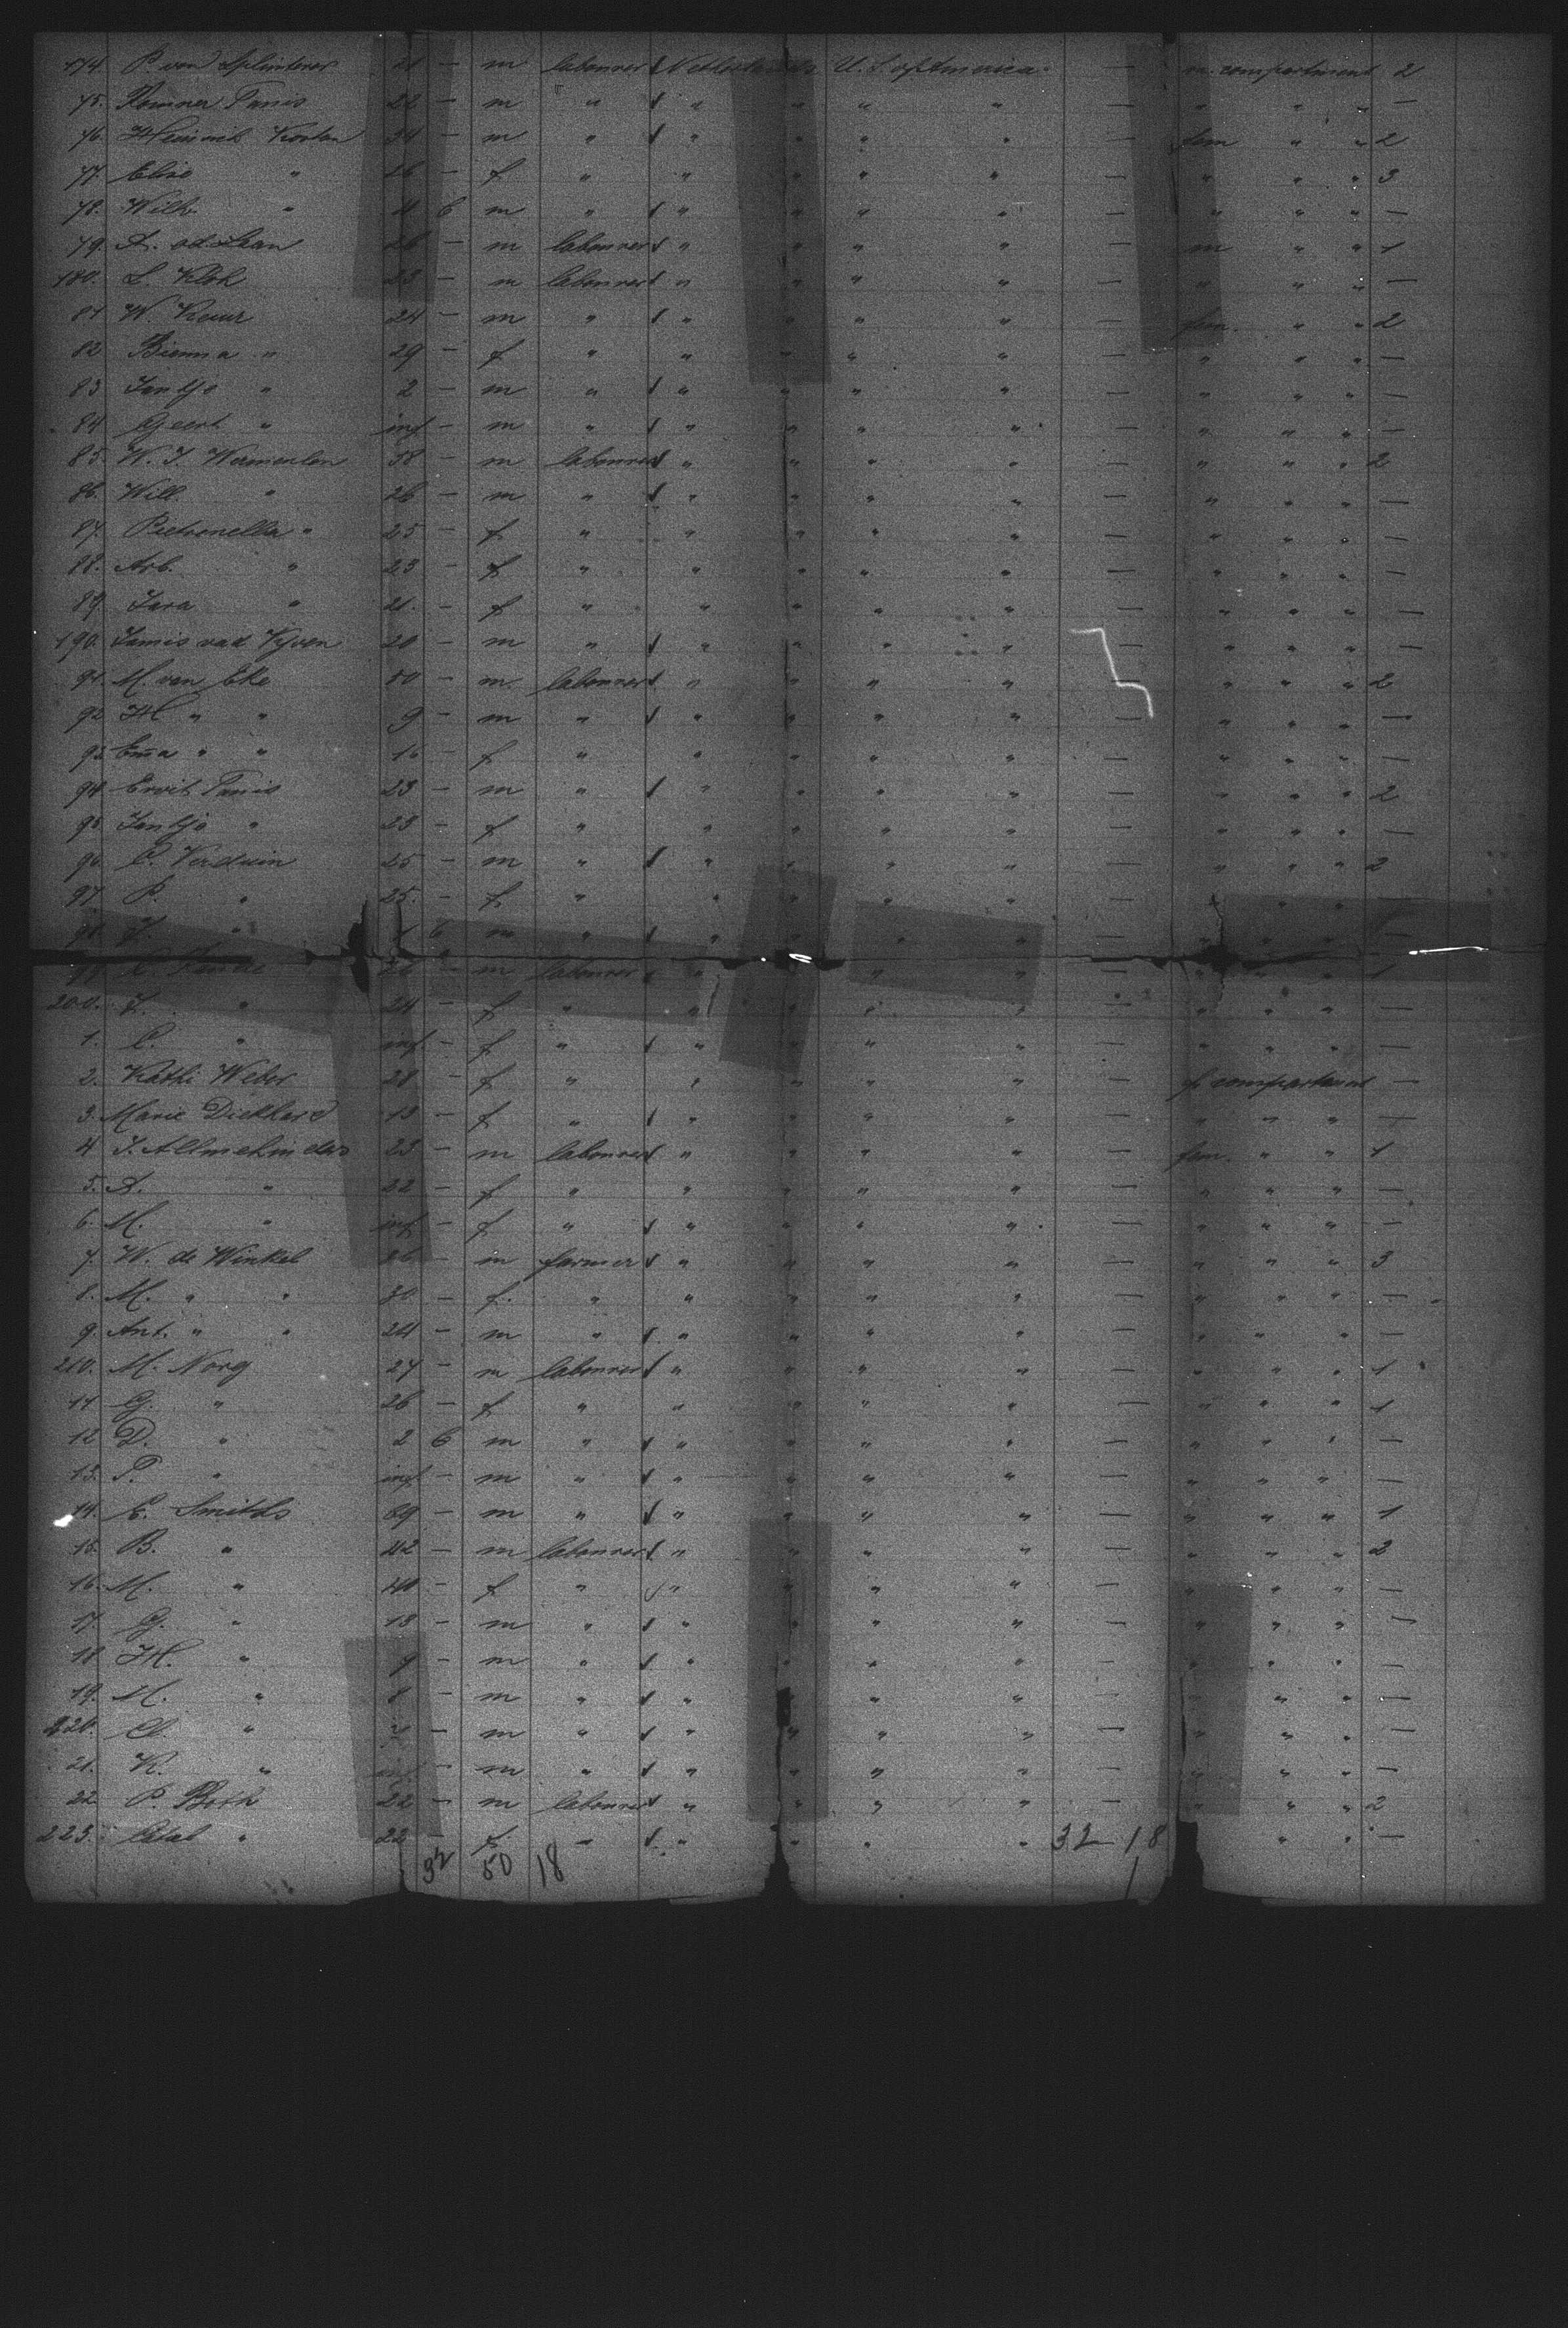 174. P. van Splinteren 21 — m labourer Netherlands U. S. of America — m. compartment 2
75. Tanis 22 — m " " " " " — " " " —
76. Heinrich Korten 34 — m " " " " " — fam " " 2
77. Elise " 26 — f " " " " " — " " " 3
78. Wilh. " 4 6 m " " " " " — " " " —
79. A. vd Laan 26 — m labourer " " " " — m " " 1
180. L. Klok 23 — m labourer " " " " — " " " —
81 W. Kuur 24 — m " " " " " — fam. " " 2
82 Bienna " 29 — f " " " " " — " " " —
83 Jantje " 2 — m " " " " " — " " " —
84 Geert " inf — m " " " " " — " " " —
85. W. J. Wermeulen 58 — m labourer " " " " — " " " 2
86. Will. " 26 — m " " " " " — " " " —
87. Pietronella " 25 — f " " " " " — " " " —
88. Arb. " 23 — f " " " " " — " " " —
89 Jara " 21. — f " " " " " — " " " —
190. 20 — m " " " " " — " " " —
91. M. van Eke 50 — m. labourer " " " " — " " " 2
92 H " " 9 — m " " " " " — " " " —
93 Ema " " 16 — f " " " " " — " " " —
94 Tanis 23 — m " " " " " — " " " 2
95 Jantje " 23 — f " " " " " — " " " —
96. C. Verduin 25 — m " " " " " — " " " 2
97 P. " 25. — f " " " " " — " " " —
98. J. " 6 m " " " " " — " " " —
99 m labourer " " " " — " " " 1
200. J. " 24 — f " " " " " — " " " —
1. C. " inf. — f " " " " " — " " " —
2. Käthi Weber 28 — f " " " " " — f compartment —
3. Marie Diekhard 13 — f " " " " " — " " " —
4 J. 23 — m labourer " " " " — fam. " " 1
5. A. " 22 — f " " " " " — " " " —
6. M. " inf — f " " " " " — " " " —
7. W. de Winkel 26 — m farmer " " " " — " " " 3
8. M. " " 30 — f. " " " " " — " " " —
9. Ant. " " 24 — m " " " " " — " " " —
210. M. Norg 27 — m labourer " " " " — " " " 1
11 G. " 26 — f " " " " " — " " " 1
12 D. " 2 6 m " " " " " — " " " —
13. P. " inf — m " " " " " — " " " —
14. E. Smitds 69 — m " " " " " — " " " 1
15. B. " 42 — m labourer " " " " — " " " 2
16. M. " 40 — f " " " " " — " " " —
17. G. " 13 — m " " " " " — " " " —
18 H. " m " " " " " — " " " —
19. M. " 8 — m " " " " " — " " " —
220. " — m " " " " " — " " " —
21. K. " m " " " " " — " " " —
22 P. Both 22 — m labourer " " " " — " " " 2
223. " 22 — f " " " " " 32 — 18 " " —
32 50 18 1